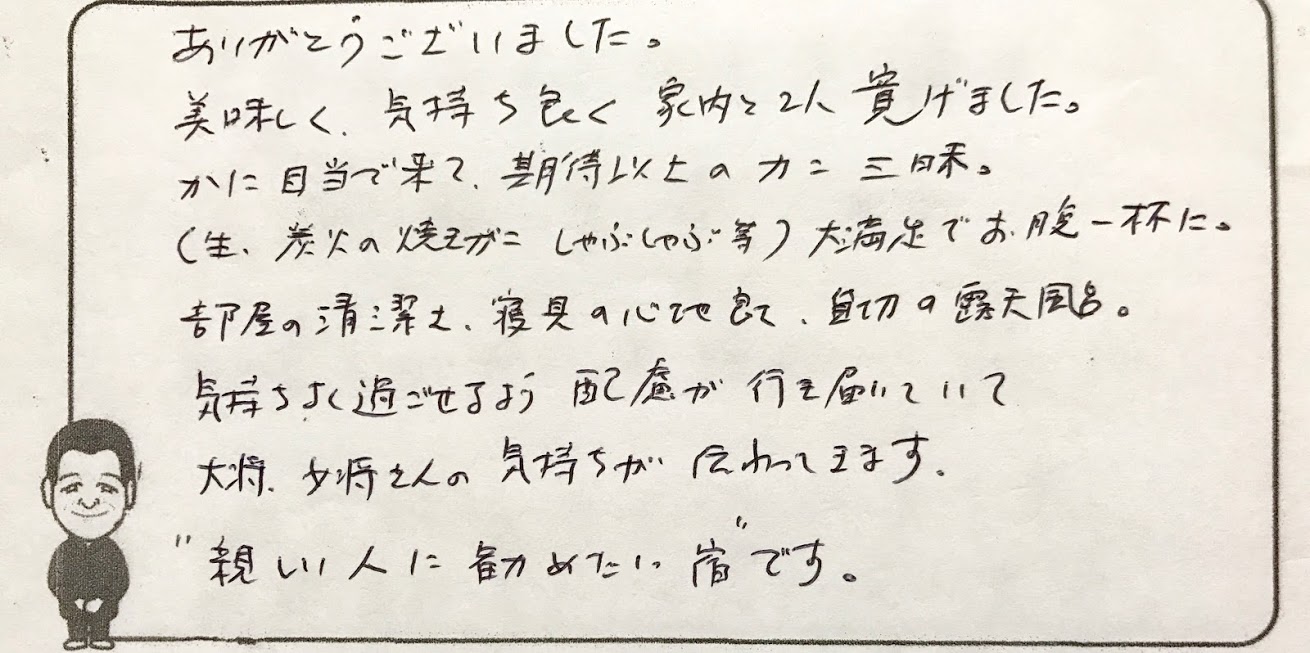 ありがとうございました。
美味しく、気持ち良く 家内と2人 寛げました。
かに目当で来て、期待以上のカニ三昧。
(生、炭火の焼きガニ しゃぶしゃぶ等)大満足でお腹一杯に。
部屋の清潔さ、寝具の心地良さ、貸切の露天風呂。
気持ちよく過ごせるよう 配慮が 行き届いていて
大将、女将さんの 気持ちが 伝わってきます。
"親しい人に 勧めたい 宿"です。